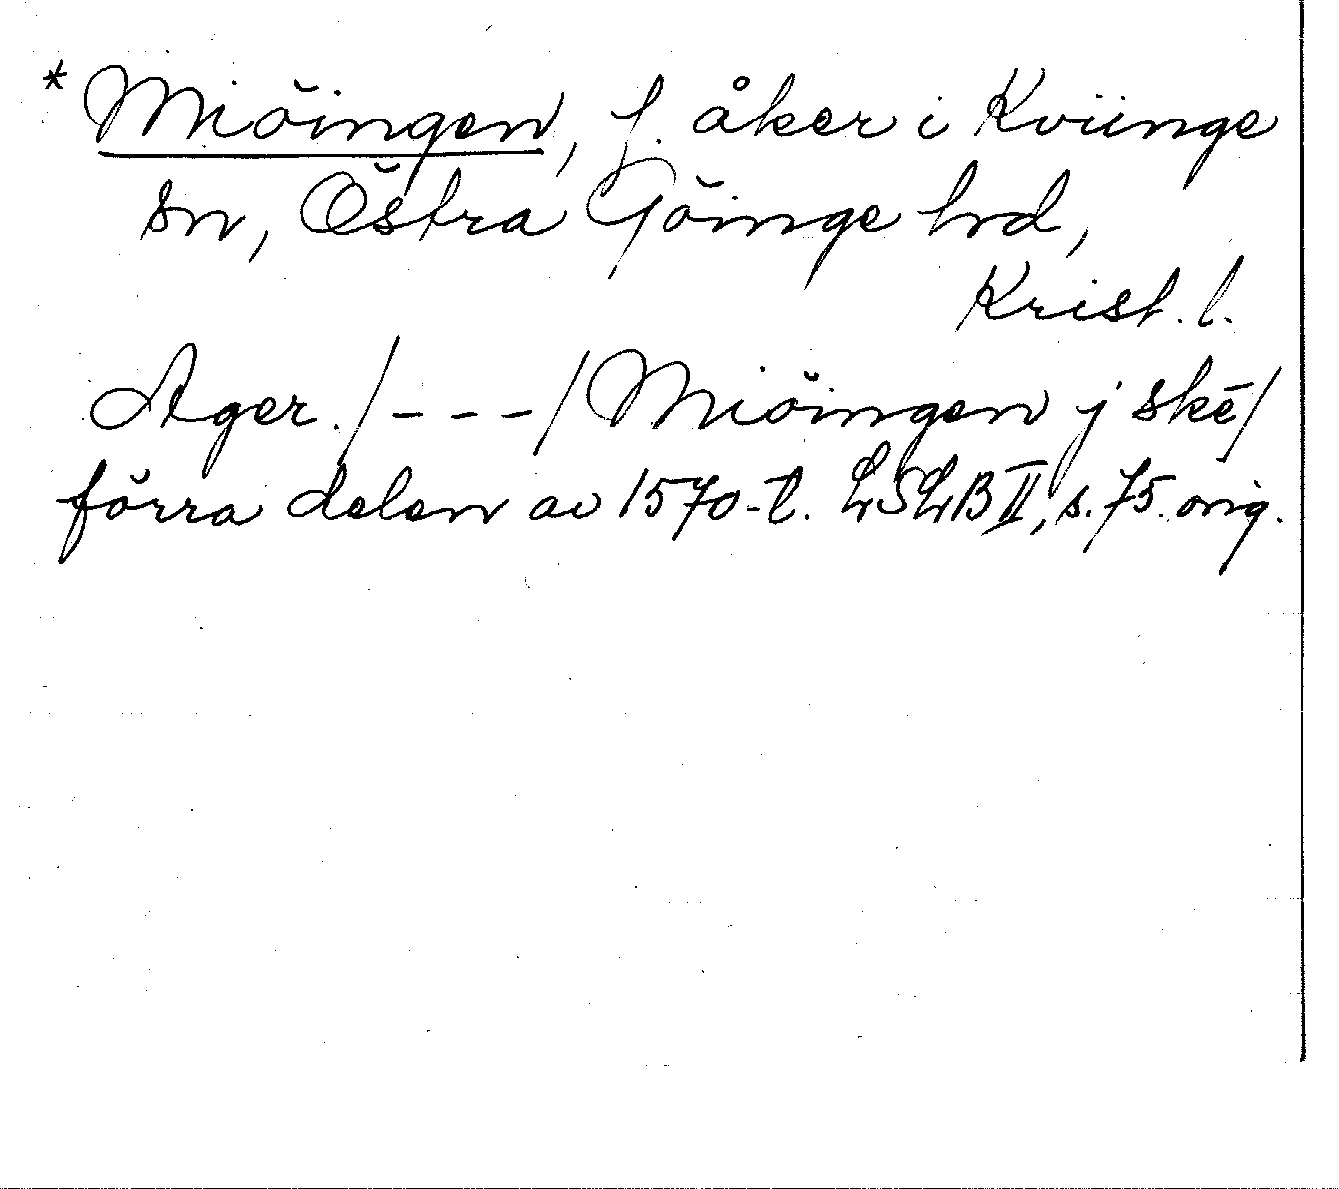 * Miöingen, f. åker i Kviinge
sn, Östra Göinge hrd,
Krist. l.
Ager. /---/ Miöingen j skē/
förra delen av 1570-t. LSLB II, s. 75. orig.